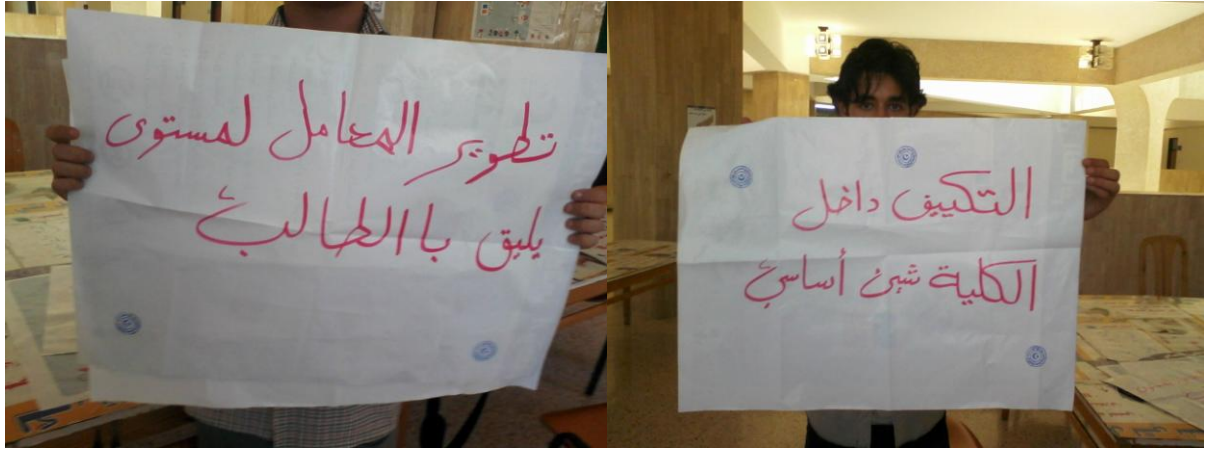 تطوير المعامل لمستوى
يليق باالطالب
التكييف داخل
الكلية شئ أساسي